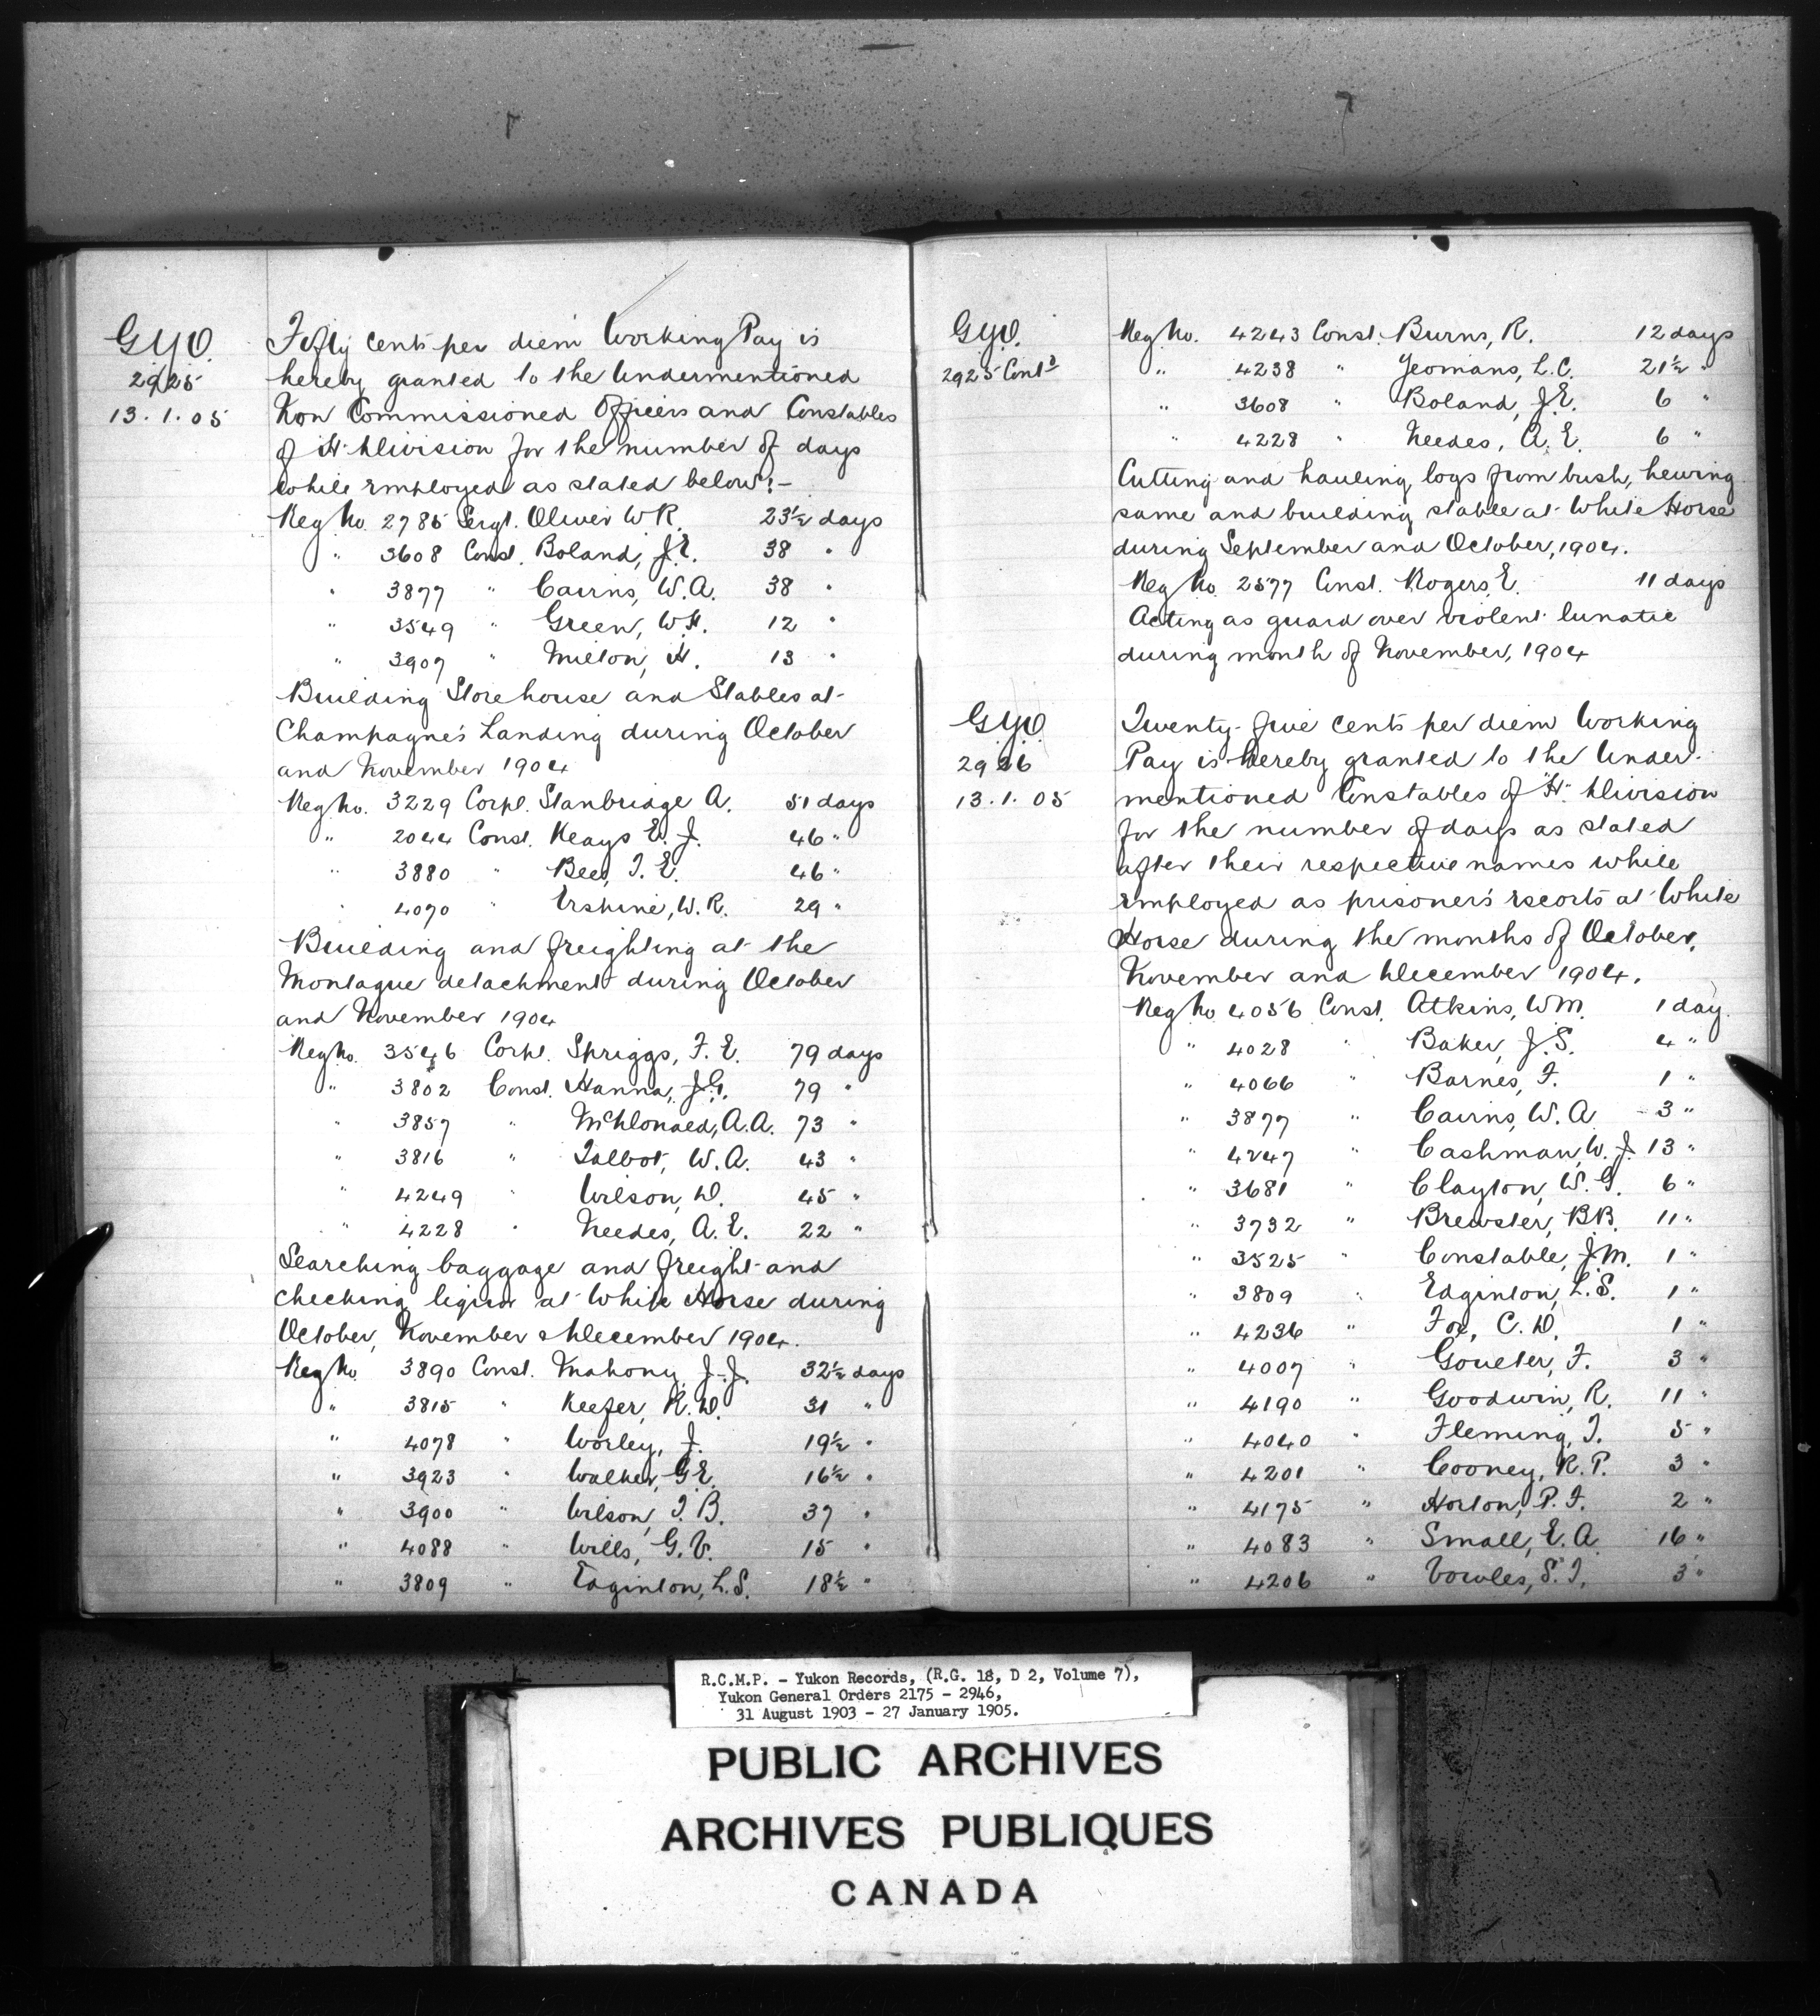 G.Y.O.
2925
13.1.05
Fifty cents per diem Working Pay is
hereby granted to the Undermentioned
Non Commissioned Officers and Constables
of "H" Division for the number of days
while employed as stated below:-
Reg No. 2785 Sergt. Oliver W R. 23½ days
" 3608 Const. Boland, J.E. 38 "
" 3877 " Cairns, W.A. 38 "
" 3549 " Green, W.H. 12 "
" 3907 " Milton, H. 13 "
Building Storehouse and Stables at
Champagne's Landing during October
and November 1904
Reg No. 3229 Corpl. Stanbridge A. 51 days
" 2044 Const. Keays E. J. 46 "
" 3880 " Bee, T. E. 46 "
" 4070 " Erskine, W.R. 29 "
Building and freighting at the
Montague detachment during October
and November 1904
Reg No. 3546 Corpl. Spriggs, F. E. 79 days
" 3802 Const. Hanna, J.G. 79 "
" 3857 " McDonald, A.A. 73 "
" 3816 " Talbot, W.A. 43 "
" 4249 " Wilson, D. 45 "
" 4228 " Needes, A.E. 22 "
Searching baggage and freight and
checking liquor at White Horse during
October, November & December 1904.
Reg No. 3890 Const. Mahony, J.J. 32½ days
" 3815 " Keefer, R.D. 31 "
" 4078 " Worley, J. 19½ "
" 3923 " Walker, G.E. 16½ "
" 3900 " Wilson, T.B. 37 "
" 4088 " Wills, G.V. 15 "
" 3809 " Edginton, L.S. 18½ "
G.Y.O.
2925 Contd
Reg No. 4243 Const. Burns, R. 12 days
" 4238 " Yeomans, L.C. 21½ "
" 3608 " Boland, J.E. 6 "
" 4228 " Needes, A.E. 6 "
Cutting and hauling logs from bush, hewing
same and building stable at White Horse
during September and October, 1904.
Reg No. 2577 Const. Rogers, E. 11 days
Acting as guard over violent lunatic
during month of November, 1904
G.Y.O.
2926
13.1.05
Twenty-five cents per diem Working
Pay is hereby granted to the Under-
mentioned Constables of "H" Division
for the number of days as stated
after their respective names while
employed as prisoner's escorts at White
Horse during the months of October,
November and December 1904.
Reg No 4056 Const. Atkins, W.M. 1 day.
" 4028 " Baker, J.S. 4 "
" 4066 " Barnes, F. 1 "
" 3877 " Cairns, W.A. 3 "
" 4247 " Cashman, W.J. 13 "
" 3681 " Clayton, W.G. 6 "
" 3732 " Brewster, B.B. 11 "
" 3525 " Constable, J.M. 1 "
" 3809 " Edginton, L.S. 1 "
" 4236 " Fox, C.D. 1 "
" 4007 " Goulter, F. 3 "
" 4190 " Goodwin, R. 11 "
" 4040 " Fleming, T. 5 "
" 4201 " Cooney, R.P. 3 "
" 4175 " Horton, P.F. 2 "
" 4083 " Small, E.A. 16 "
" 4206 " Vowles, S.T. 3 "
R.C.M.P. - Yukon Records, (R.G. 18, D 2, Volume 7),
Yukon General Orders 2175 - 2946,
31 August 1903 - 27 January 1905.
PUBLIC ARCHIVES
ARCHIVES PUBLIQUES
CANADA